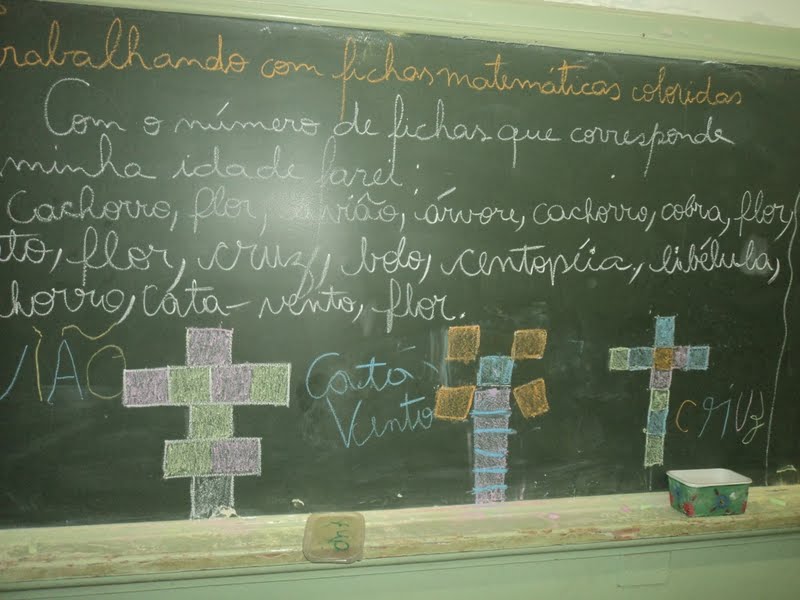 Trabalhando com fichas matemáticas coloridas
Com o número de fichas que corresponde
minha idade farei:
Cachorro, flor, avião, árvore, cachorro, cobra, flor,
flor, cruz, centopéia, libélula,
horro, cata-vento, flor.
VIÃO
Catá-
Vento
cruz